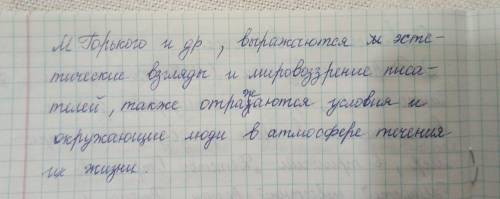 М Горького и др , выражаются и эсте-
тические взгляды и мировоззрение писа-
телей, также отражаются условия и
окружающие люди в атмосфере течения
их жизни.